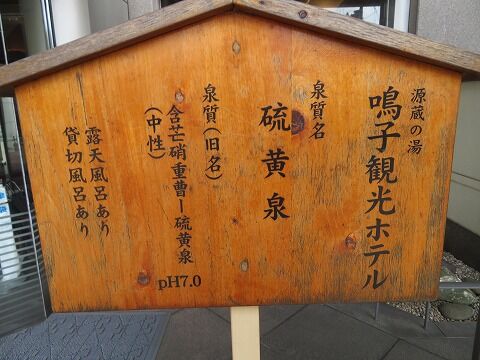 源蔵の湯
鳴子観光ホテル
泉質名
硫黄泉
泉質(旧名)
含芒硝重曹ー硫黄泉
(中性)
pH7.0
露天風呂あり
貸切風呂あり